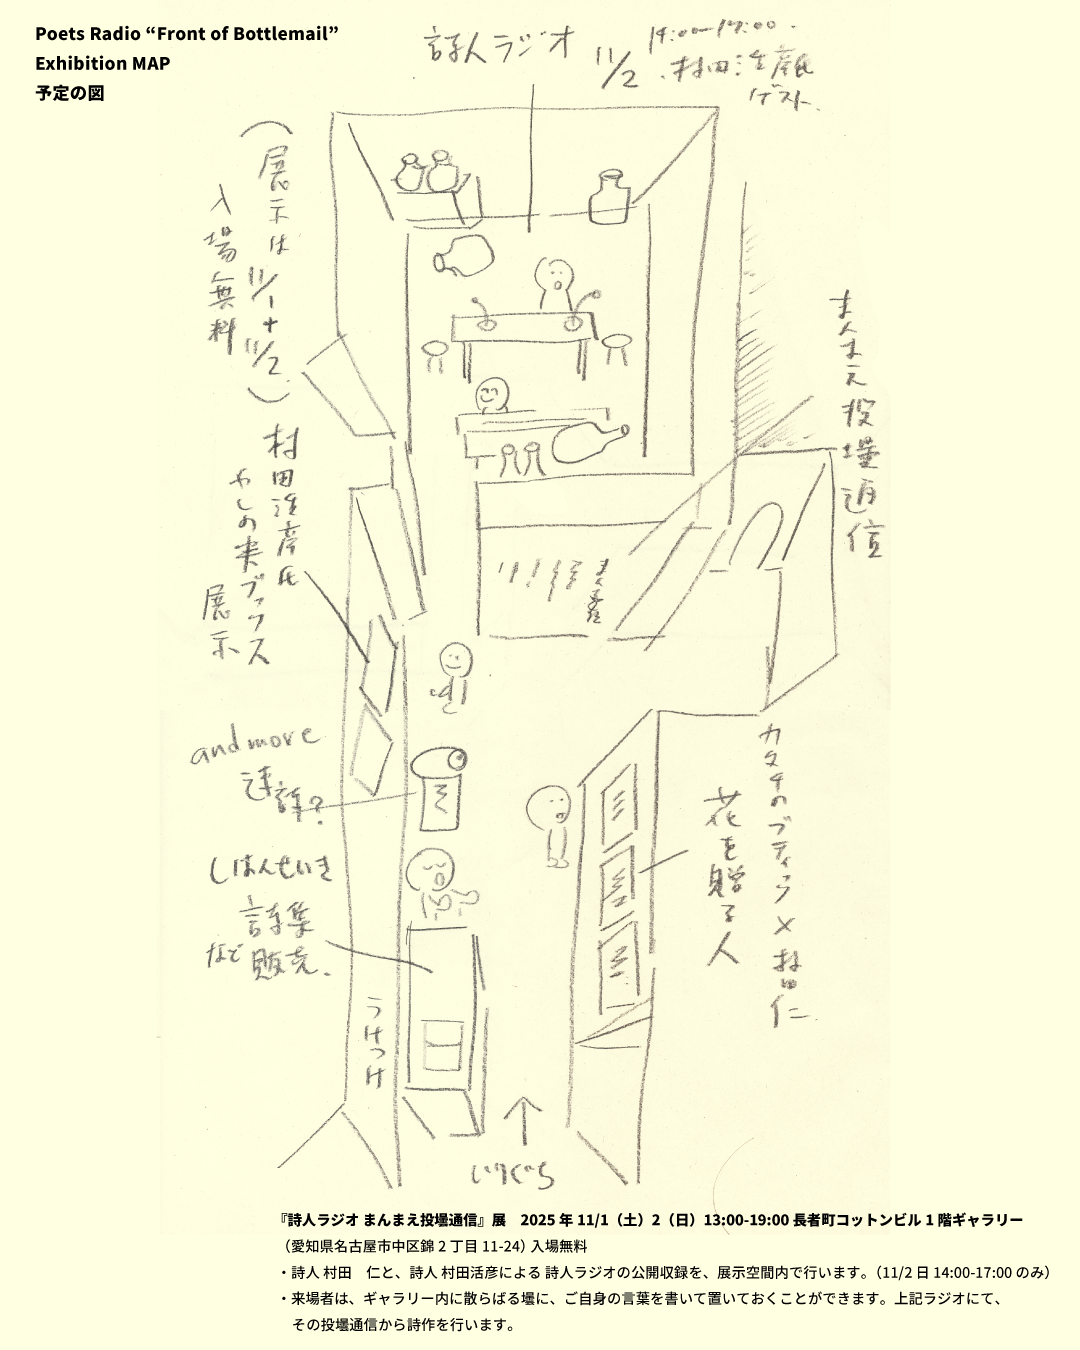 Poets Radio “Front of Bottlemail”
Exhibition MAP
予定の図
詩人ラジオ 11/2 14:00-17:00
村田活彦氏
ゲスト
(展示は
11/1+11/2)
入場無料
まんまえ投壜通信
村田活彦氏
やしの実ブックス
展示
and more
連詩?
しはんせいき
詩集
など販売
うけつけ
カタチのブティック×村田仁
花を贈る人
いりぐち
『詩人ラジオ まんまえ投壜通信』展　2025 年 11/1（土）2（日）13:00-19:00 長者町コットンビル 1 階ギャラリー
（愛知県名古屋市中区錦 2 丁目 11-24）入場無料
・詩人 村田　仁と、詩人 村田活彦による 詩人ラジオの公開収録を、展示空間内で行います。（11/2 日 14:00-17:00 のみ）
・来場者は、ギャラリー内に散らばる壜に、ご自身の言葉を書いて置いておくことができます。上記ラジオにて、
その投壜通信から詩作を行います。